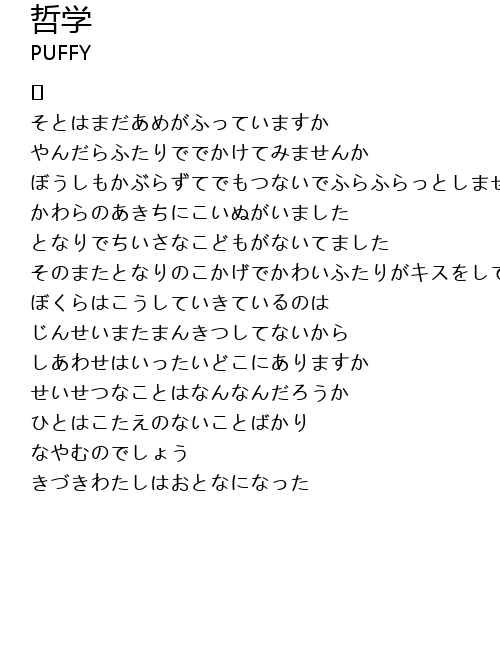 哲学
PUFFY
そとはまだあめがふっていますか
やんだらふたりででかけてみませんか
ぼうしもかぶらずてでもつないでふらふらっとしませ
かわらのあきちにこいぬがいました
となりでちいさなこどもがないてました
そのまたとなりのこかげでかわいふたりがキスをして
ぼくらはこうしていきているのは
じんせいまたまんきつしてないから
しあわせはいったいどこにありますか
せいせつなことはなんなんだろうか
ひとはこたえのないことばかり
なやむのでしょう
きづきわたしはおとなになった